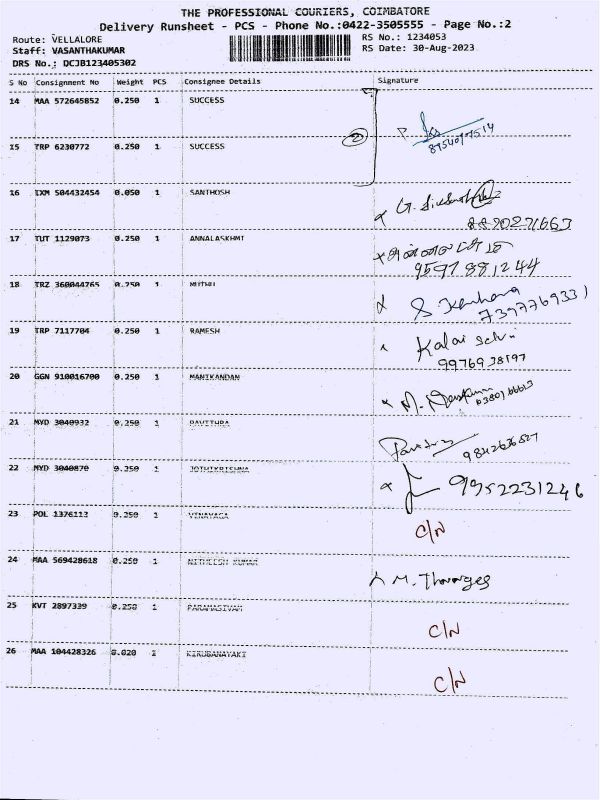 THE PROFESSIONAL COURIERS, COIMBATORE
Delivery Runsheet - PCS - Phone No.:0422-3505555 - Page No.:2
Route: VELLALORE
RS No.: 1234053
Staff: VASANTHAKUMAR
RS Date: 30-Aug-2023
DRS No.: DCJB123405302
S No Consignment No Weight PCS Consignee Details Signature
14 MAA 572645852 0.250 1 SUCCESS
2
8954017514
15 TRP 6230772 0.250 1 SUCCESS
16 IXM 504432454 0.050 1 SANTHOSH
8890271663
17 TUT 1129073 0.250 1 ANNALASKHMI
9597881244
18 TRZ 360044765 0.250 1 MUTHU
7397769331
19 TRP 7117704 0.250 1 RAMESH
Kalai Selvi
9976938197
20 GGN 910016700 0.250 1 MANIKANDAN
21 MYD 3040932 0.250 1 PAVITHRA
22 MYD 3040870 0.250 1 JOTHIKRISHNA
9952231246
23 POL 1376113 0.250 1 VINAYAGA
C/N
24 MAA 569428618 0.250 1 NITHEESH KUMAR
M.
25 KVT 2897339 0.250 1 PARAMASIVAM
C/N
26 MAA 104428326 0.020 1 KIRUBANAYAKI
C/N